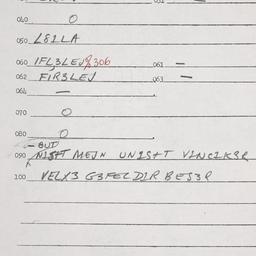 040 O
050 L81LA
060 IFL3LEJ%306 061 —
062 FIR3LEJ 063 —
064 —
070 O
080 O
— BUT
090 NISHT MEJN UNISHT VINCIK3R
100 VELX3 G3FELDIR BES3R